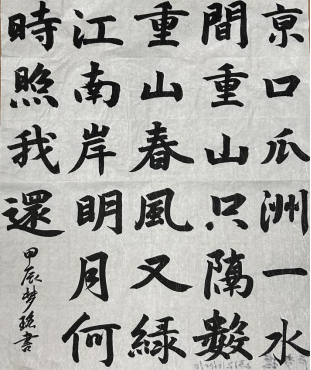 京口瓜洲一水
間重山只隔數
重山春風又綠
江南岸明月何
時照我還
甲辰夢書